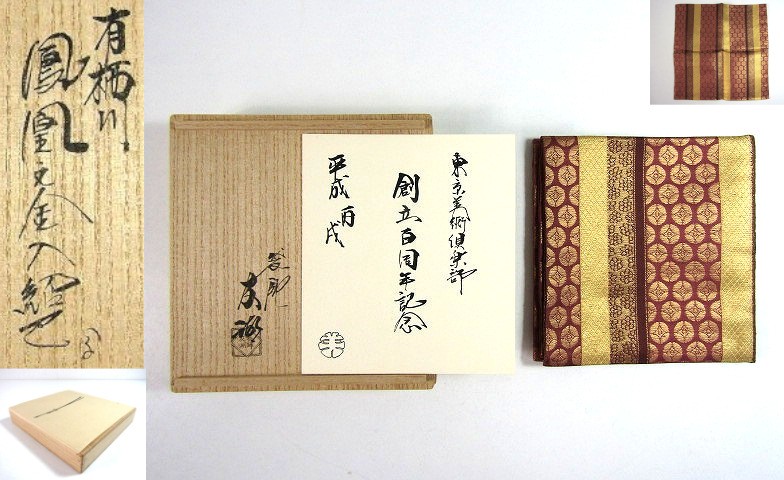 有栖川
鳳凰文金入紹巴
東京美術倶楽部
創立百周年記念
平成丙戌